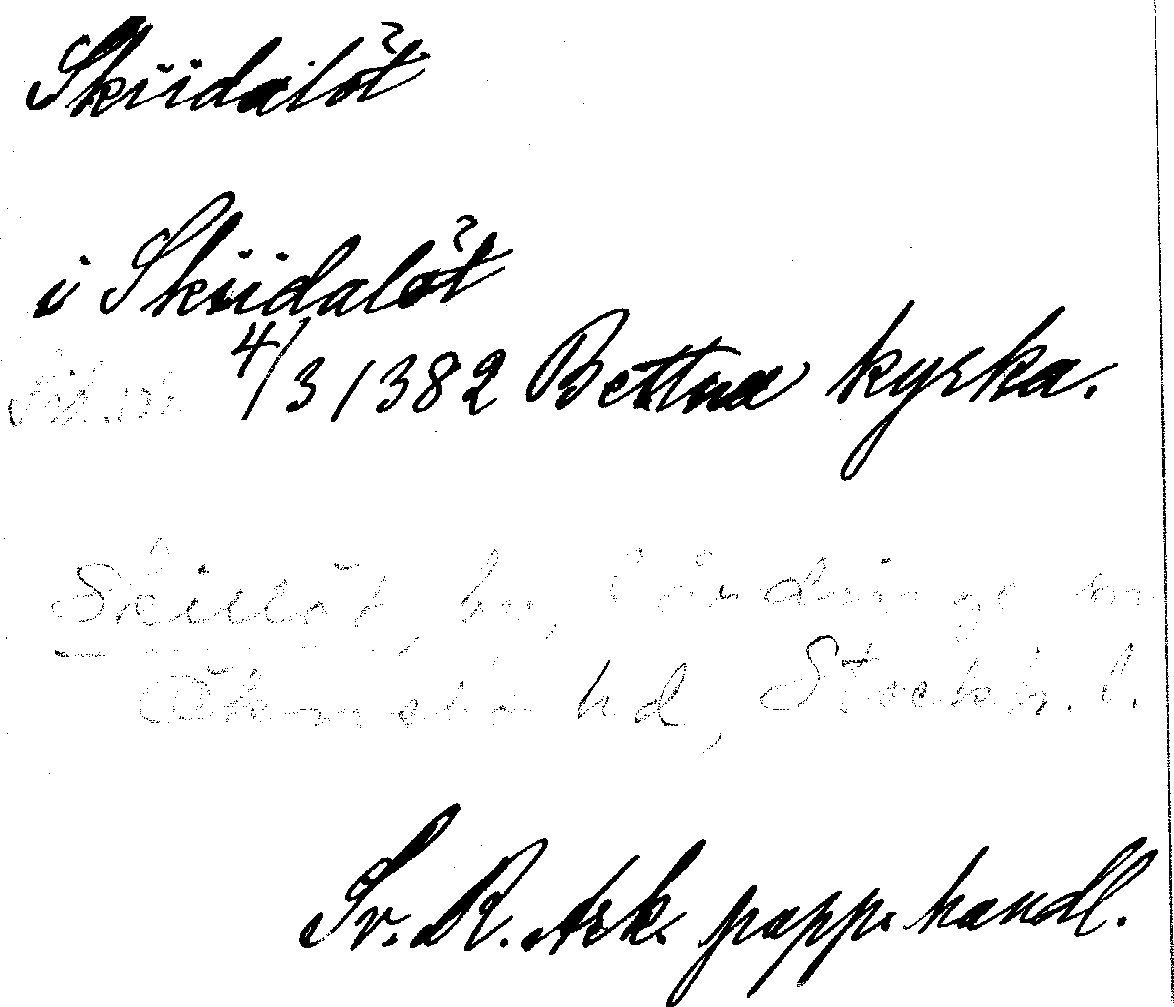 Skiidalöt
i Skiidalöt
4/3 1382 Bettna kyrka.
Skillöt, by, Vårdinge sn
Öknebo hd, Stockh. l.
Sv. R. Ark. papp. handl.